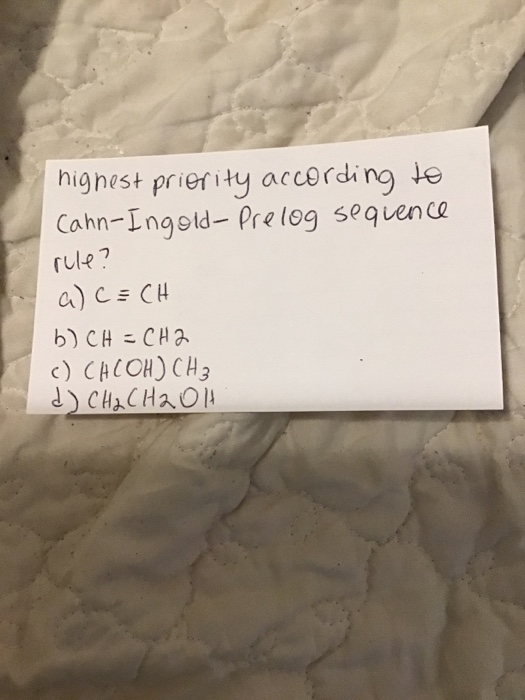 highest priority according to
Cahn-Ingold-Prelog sequence
rule?
a) C ≡ CH
b) CH = CH2
c) CH(OH)CH3
d) CH2CH2OH